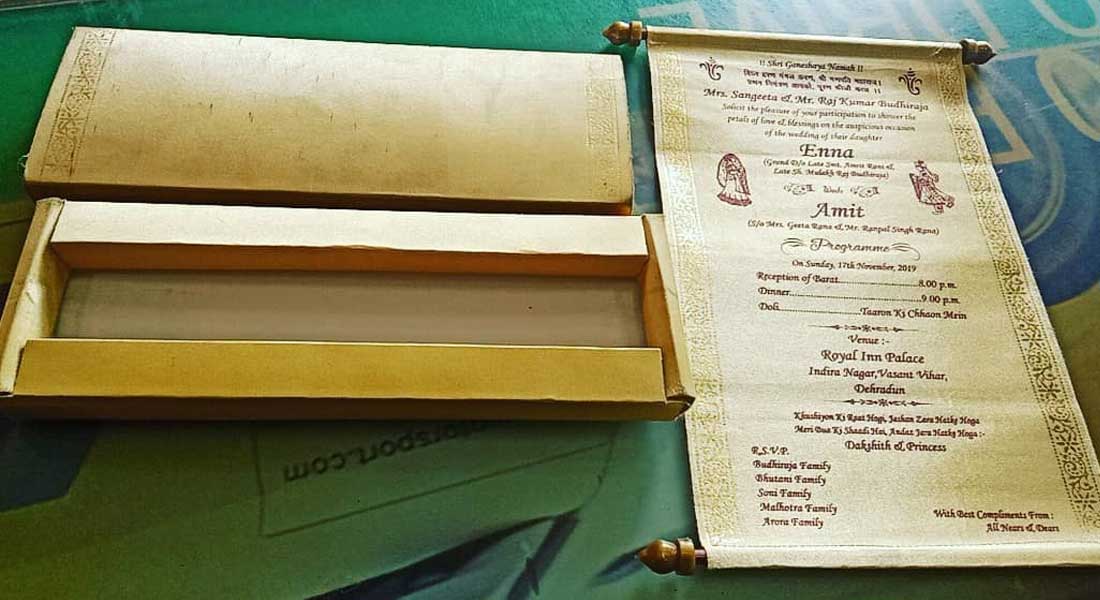 !! Shri Ganeshaya Namah !!
विघ्न हरण मंगल करण, श्री गणपति महाराज।
प्रथम निमंत्रण आपको, पूरण कीजो काज ।।
Mrs. Sangeeta & Mr. Raj Kumar Budhiraja
Solicit the pleasure of your participation to shower the
petals of love & blessings on the auspicious occasion
of the wedding of their daughter
Enna
(Grand D/o Late Smt. Amrit Rani &
Late Sh. Mulakh Raj Budhiraja)
Weds
Amit
(S/o Mrs. Geeta Rana & Mr. Ranpal Singh Rana)
Programme
On Sunday, 17th November, 2019
Reception of Barat....................8.00 p.m.
Dinner.................................9.00 p.m.
Doli.....................Taaron Ki Chhaon Mein
Venue :-
Royal Inn Palace
Indira Nagar,Vasant Vihar,
Dehradun
Khushiyon Ki Raat Hogi, Jashan Zara Hatke Hoga
Meri Bua Ki Shaadi Hai, Andaz Jara Hatke Hoga :-
Dakshith & Princess
R.S.V.P.
Budhiraja Family
Bhutani Family
Soni Family
Malhotra Family
Arora Family
With Best Compliments From :
All Nears & Dears
torsport.com